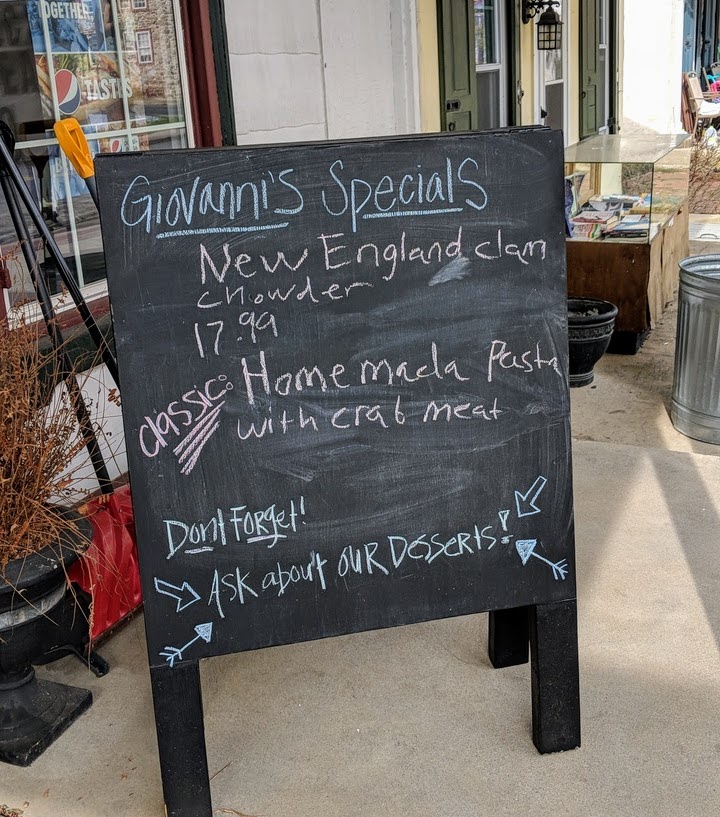 TOGETHER.
TASTES
GIOVANNI'S SPECIALS
New England clam
chowder
17.99
classic: Homemada Pasta
with crab meat
Dont Forget!
Ask about our Desserts!